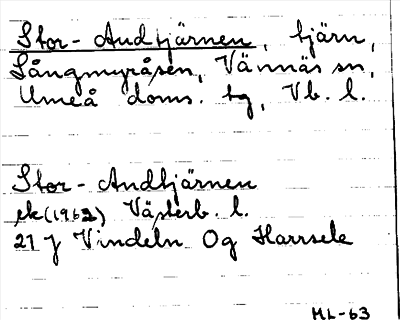 Stor-Andtjärnen, tjärn,
Långmyråsen, Vännäs sn,
Umeå doms. tg, Vb. l.
Stor-Andtjärnen
ek (1962) Västerb. l.
21 J Vindeln Og Harrsele
ML-63